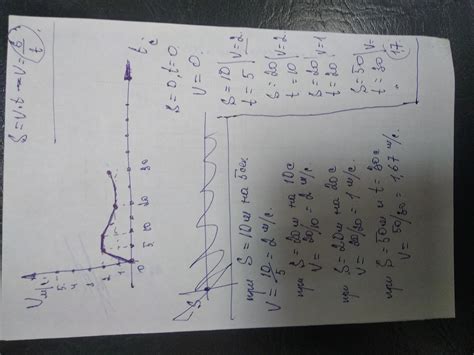 S = V·t → V = S/t
V м/с
5
4
3
2
1
0
5
10
20
30
t, с
S=0, t=0
V=0
S=10 | V=2
t=5
S=20 | V=2
t=10
S=20 | V=1
t=20
S=50 | V=
t=30
17
при S=10м на 5сек
V = 10/5 = 2 м/с.
при S=20м на 10с
V = 20/10 = 2 м/с
при S=20м на 20с
V = 20/20 = 1 м/с.
при S=50м и t=30с
V = 50/30 = 1,67 м/с.